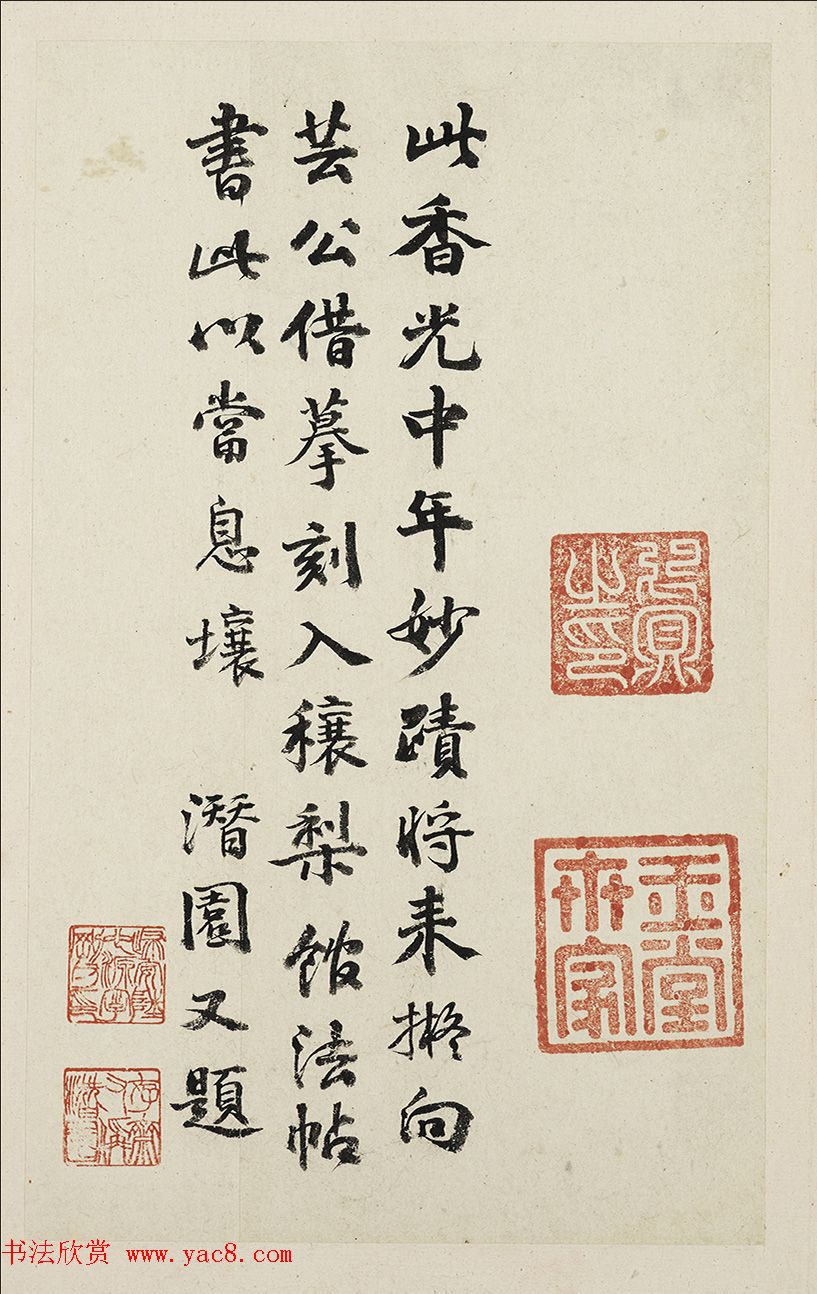 此香光中年妙蹟將来擬向
芸公借摹刻入穰梨館法帖
書此以當息壤 潛園又題
玉堂世家
書法欣赏 www.yac8.com